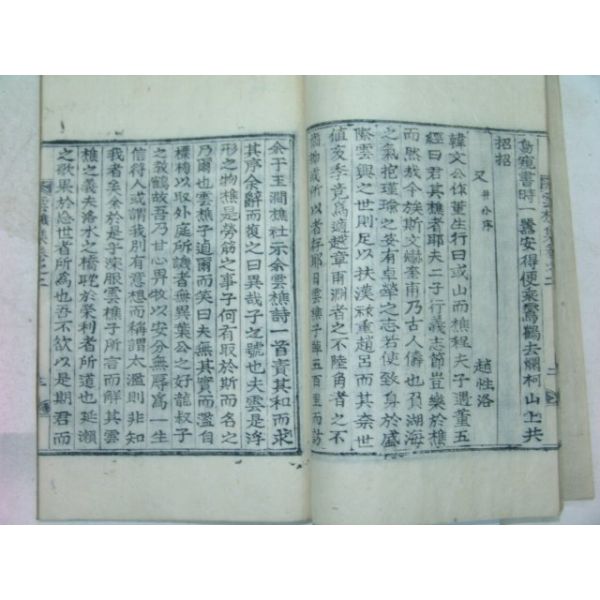 島寃書時一囂安得便乘鸞鶴去爛柯山上共
招招
又 幷小序
趙性洛
韓文公作董生行曰或山而樵程夫子遇董五
經曰君其樵者耶夫二子行義志節豈樂於樵
而然哉今族斯文 秦甫乃古人儔也 湖海
之氣抱瑾瑜之姿有卓犖之志若使致身於盛
際雲興之世足以扶漢 重趙呂而其奈世
値亥季竟爲適越章甫 者之不陸角者之不
所以者 耶日雲樵子 五百里而訪
余于玉澗樵社示余雲樵詩一首責其和而求
其序余辭而復之曰異哉子之號也夫雲是浮
形之物樵是勞筋之事子何有取於斯而名之
乃爾也雲樵子逌爾而笑曰夫無其實而濫自
標榜以取外庭所譏者無異葉公之好龍叔子
之敎鶴故吾乃甘心畀牧以安分無辱爲一生
信符人或謂我別有意想而稱謂太濫則非知
我者矣余於是乎深服雲樵子所言而解其雲
樵之義夫洛水之橋 於榮利者所道也延瀨
之歌果於忘世者所爲也吾不欲以是期君而
雲樵集卷之二